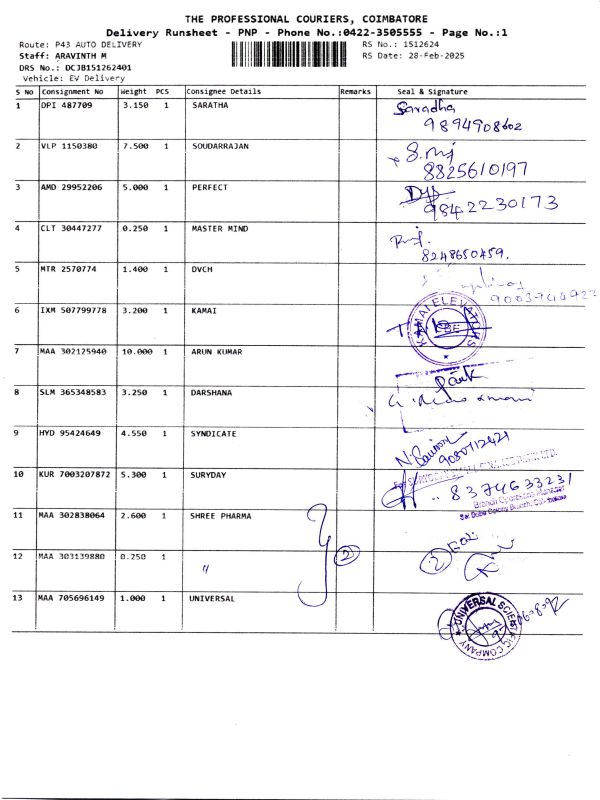 THE PROFESSIONAL COURIERS, COIMBATORE
Delivery Runsheet - PNP - Phone No.:0422-3505555 - Page No.:1
Route: P43 AUTO DELIVERY RS No.: 1512624
Staff: ARAVINTH M RS Date: 28-Feb-2025
DRS No.: DCJB151262401
Vehicle: EV Delivery
S No Consignment No Weight PCS Consignee Details Remarks Seal & Signature
1 OPI 487709 3.150 1 SARATHA Saradha
9894908602
2 VLP 1150380 7.500 1 SOUDARRAJAN
8825610197
3 AMD 29952206 5.000 1 PERFECT
9842230173
4 CLT 30447277 0.250 1 MASTER MIND
8248650459.
5 MTR 2570774 1.400 1 DVCH
6 IXM 507799778 3.200 1 KAMAI KAMAI ELEVATORS
7 MAA 302125940 10.000 1 ARUN KUMAR
8 SLM 365348583 3.250 1 DARSHANA
9 HYD 95424649 4.550 1 SYNDICATE
9080712421
10 KUR 7003207872 5.300 1 SURYDAY
8374633231
Branch Operations Manager
Sai Baba Colony Branch,
11 MAA 302838064 2.600 1 SHREE PHARMA
2 2
12 MAA 303139880 0.250 1 "
13 MAA 705696149 1.000 1 UNIVERSAL UNIVERSAL SCIENTIFIC COMPANY